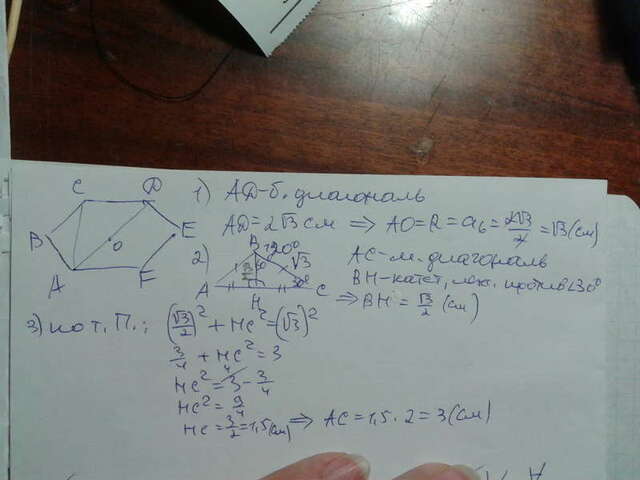 C D
B E
A F
O
1) АД-б. диагональ
АД=2√3 см ⇒ АО=R=a₆=2√3/2=√3(см)
2) B 120°
√3
30°
A H C
АС-м. диагональ
ВН-катет, леж. против ∠30°
⇒ ВН=√3/2 (см)
3) по т. П.: (√3/2)²+HC²=(√3)²
3/4+HC²=3
HC²=3-3/4
HC²=9/4
HC=3/2=1,5(см) ⇒ AC=1,5·2=3(см)